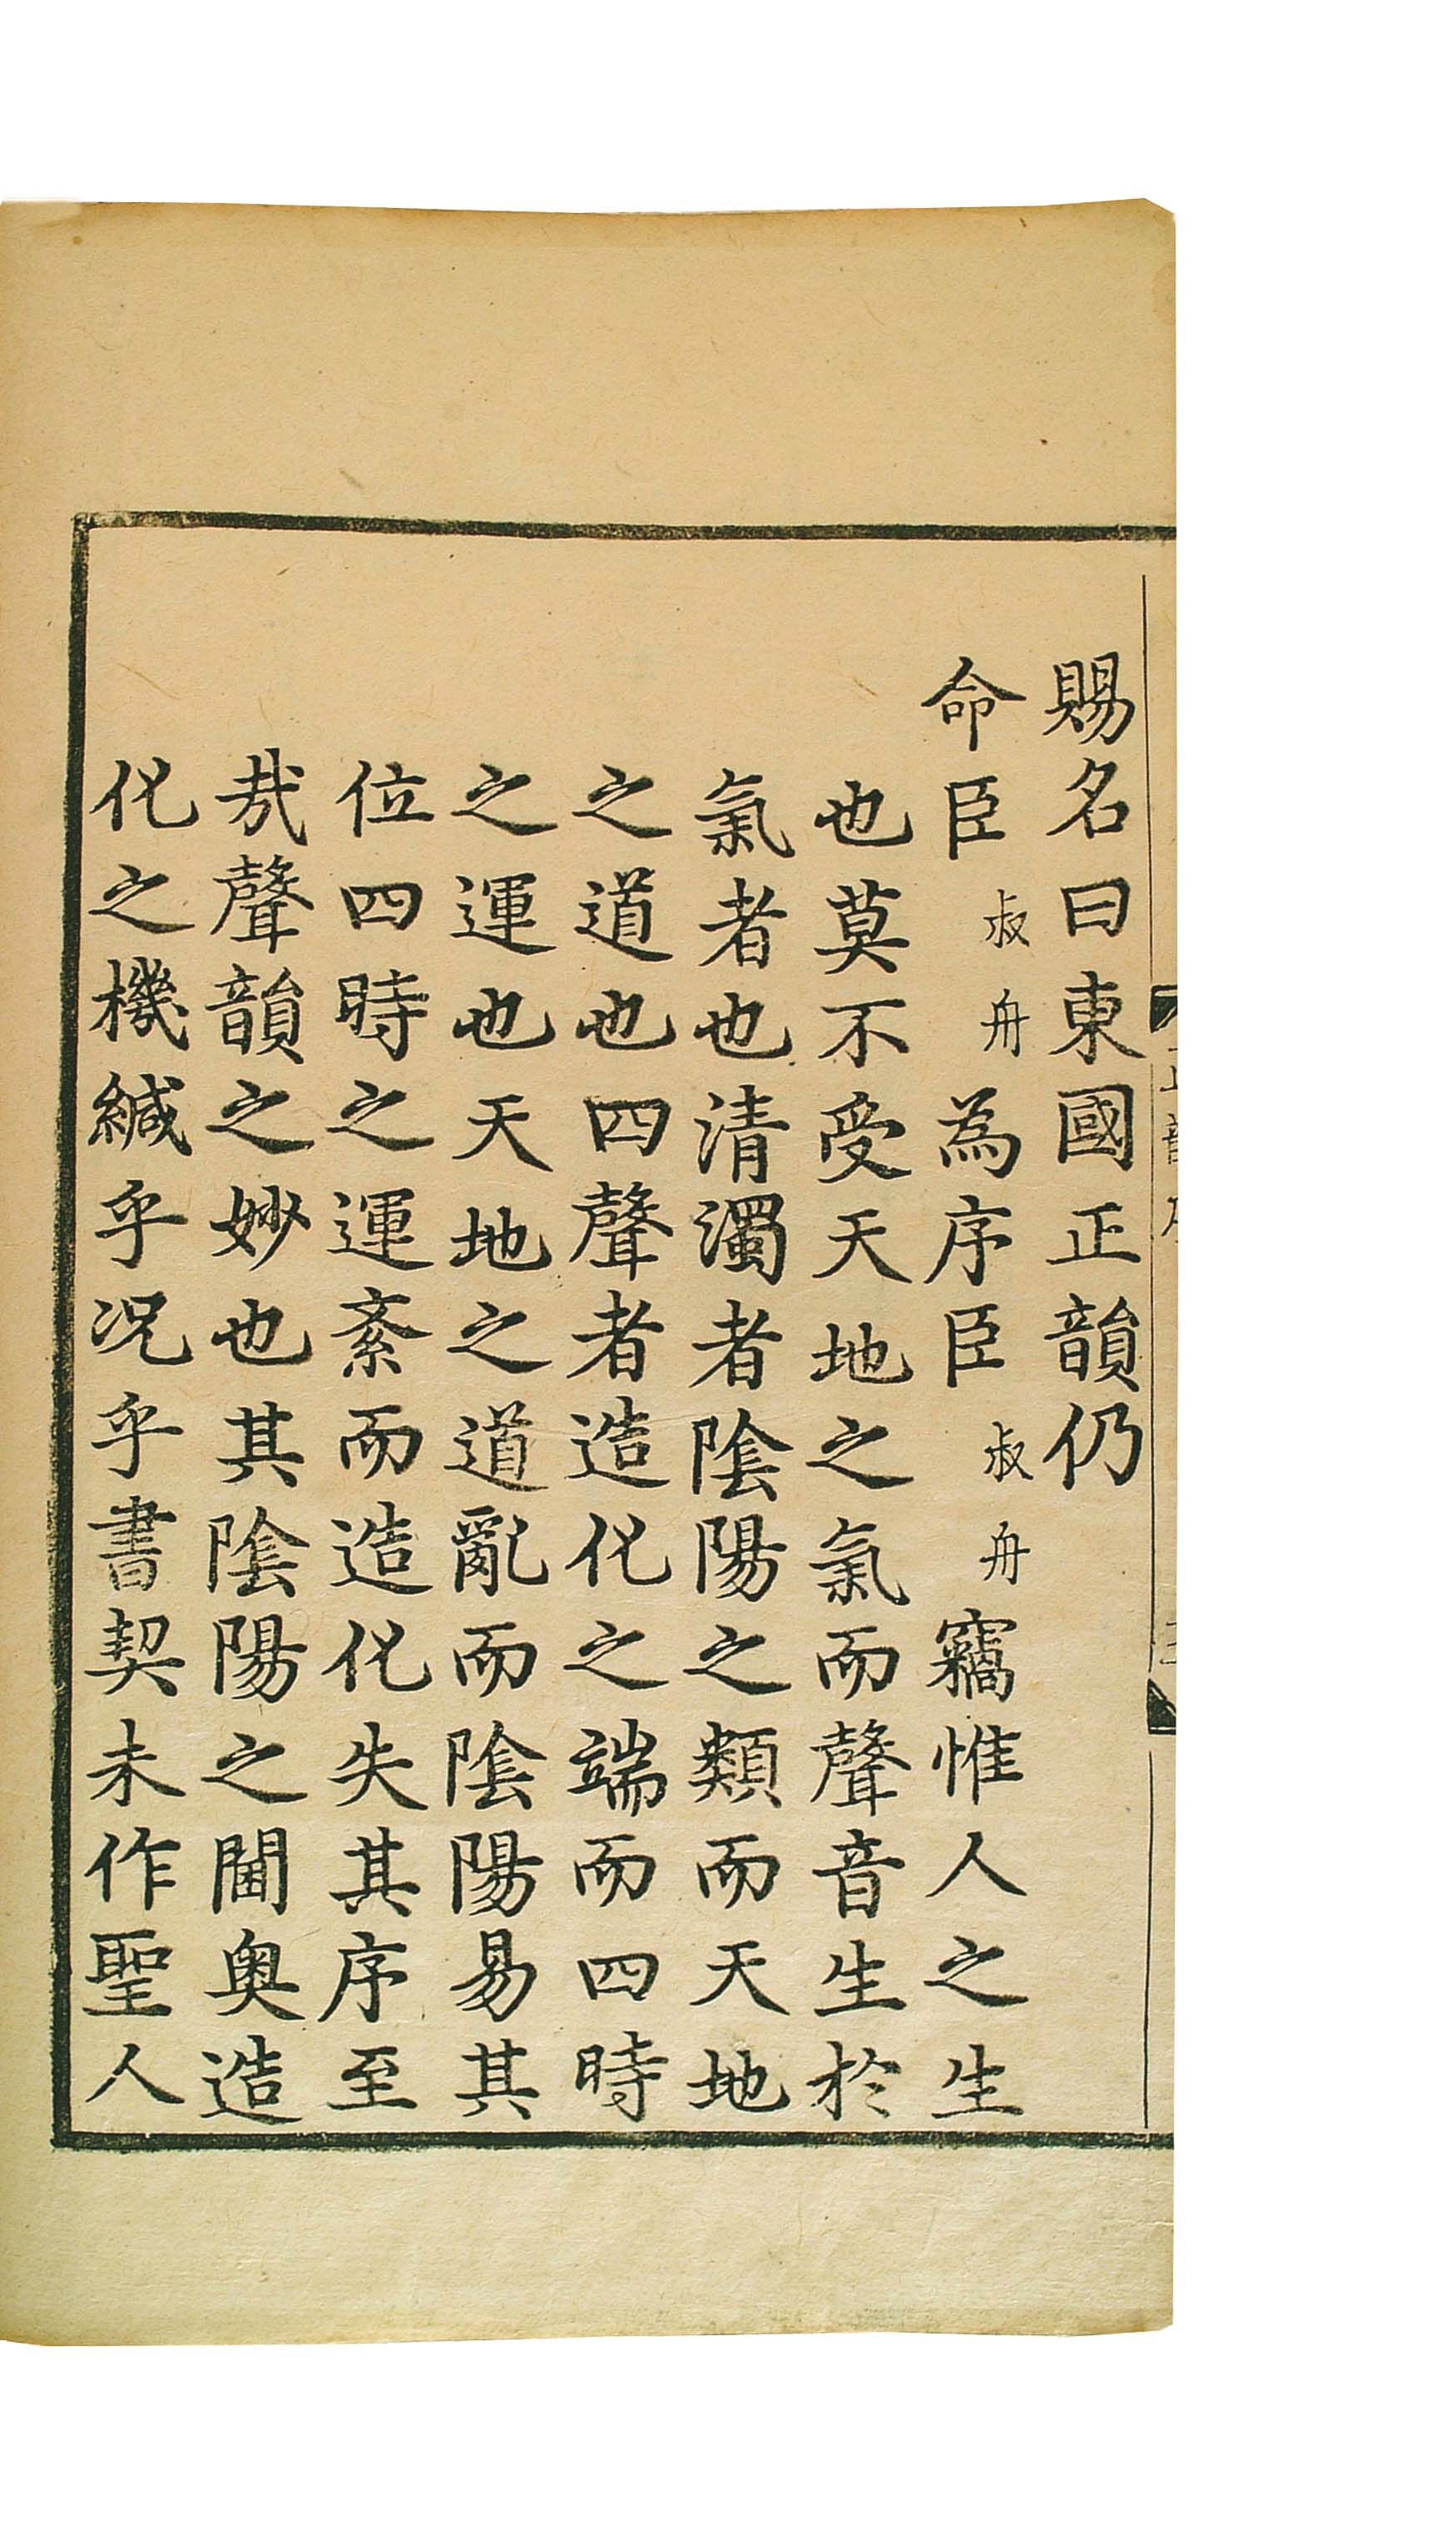 賜名曰東國正韻仍
命臣叔舟為序臣叔舟竊惟人之生
也莫不受天地之氣而聲音生於
氣者也清濁者陰陽之類而天地
之道也四聲者造化之端而四時
之運也天地之道亂而陰陽易其
位四時之運紊而造化失其序至
㢤聲韻之妙也其陰陽之閫奧造
化之機緘乎况乎書契未作聖人